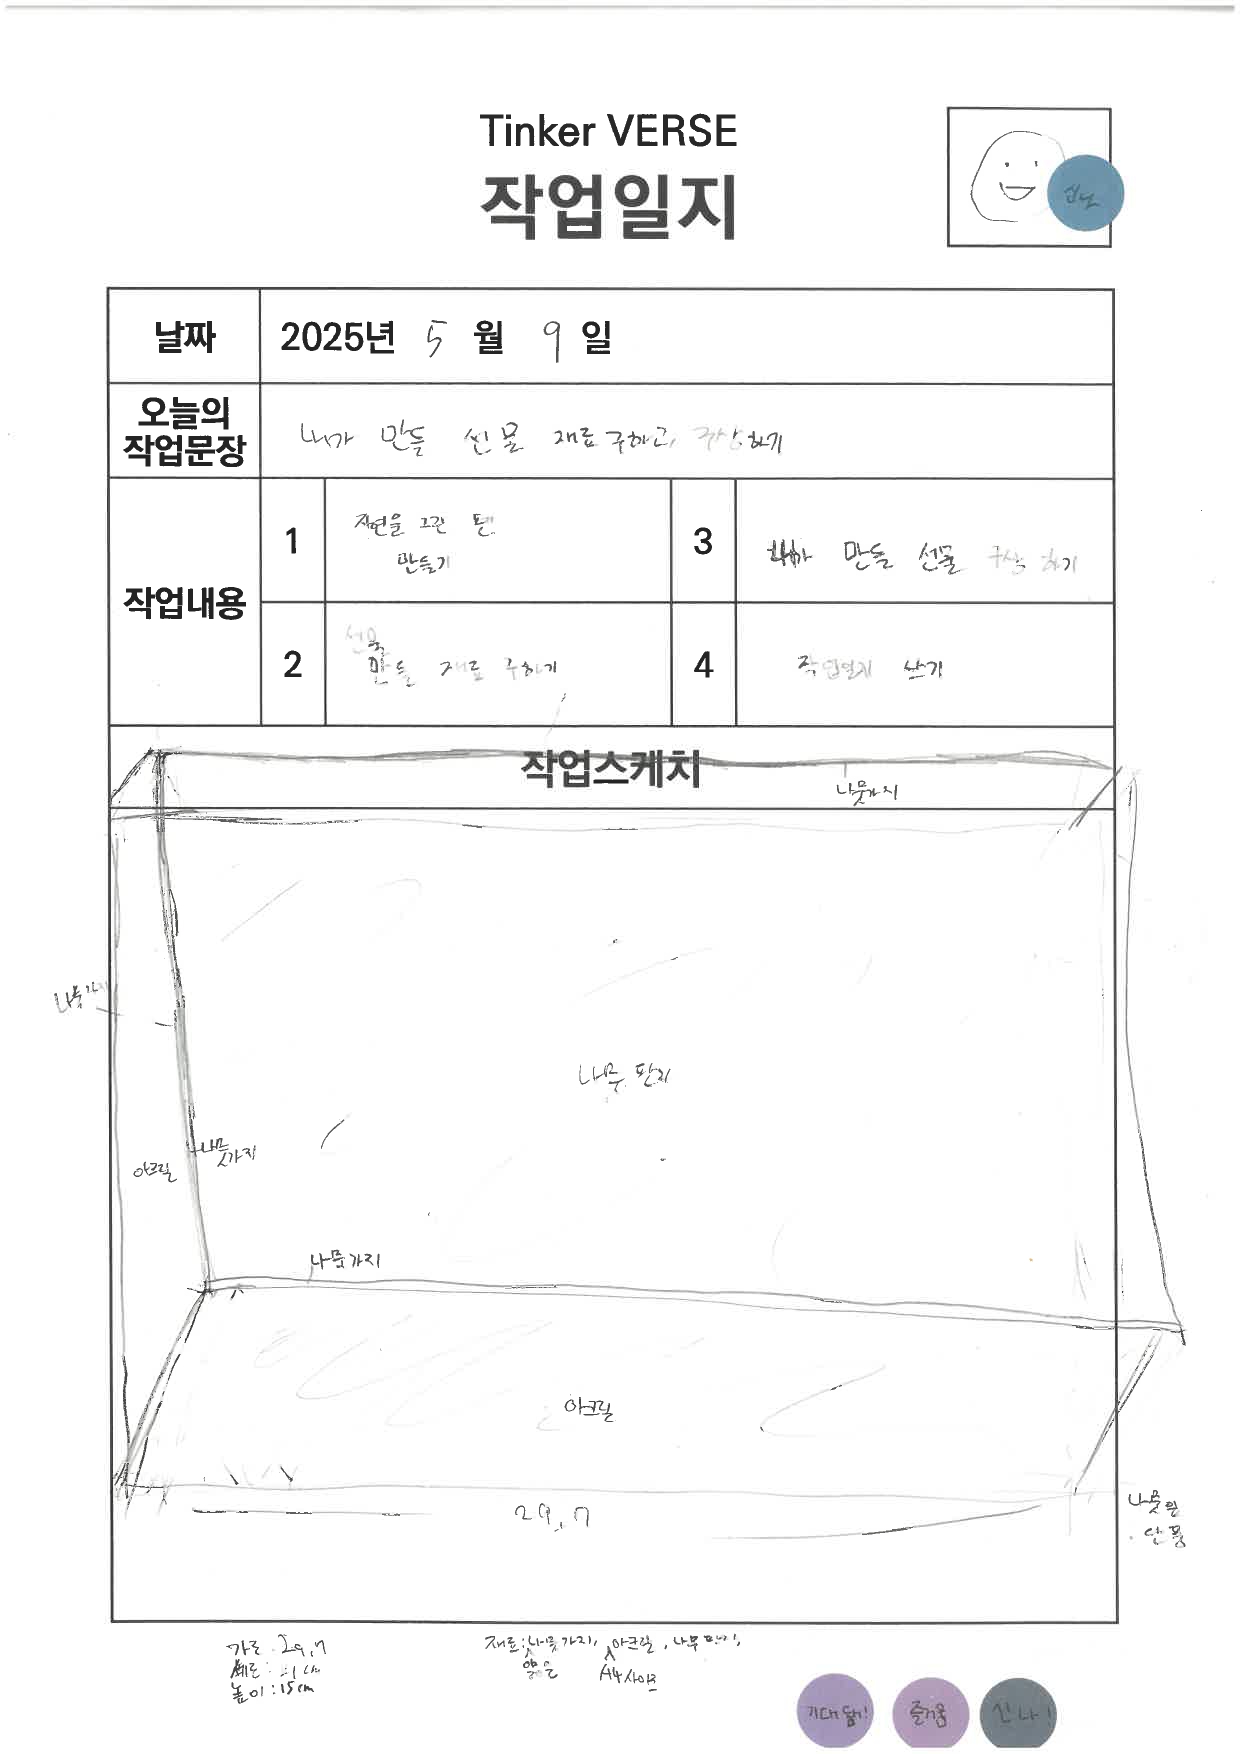 Tinker VERSE
작업일지
신남
날짜
2025년 5월 9일
오늘의
작업문장
내가 만들 선물 재료 구하고, 구상하기
작업내용
1
자연을 그린 펜
만들기
3
내가 만들 선물 구상하기
2
선물
만들 재료 구하기
4
작업일지 쓰기
작업스케치
나뭇가지
나뭇가지
나무 판지
아크릴
나뭇가지
나뭇가지
아크릴
29.7
나뭇잎
단풍
가로: 29.7
세로: 21cm
높이: 15cm
재료: 나뭇가지, 아크릴, 나무 판지,
얇은 A4 사이즈
기대돼!
즐거움
신나!